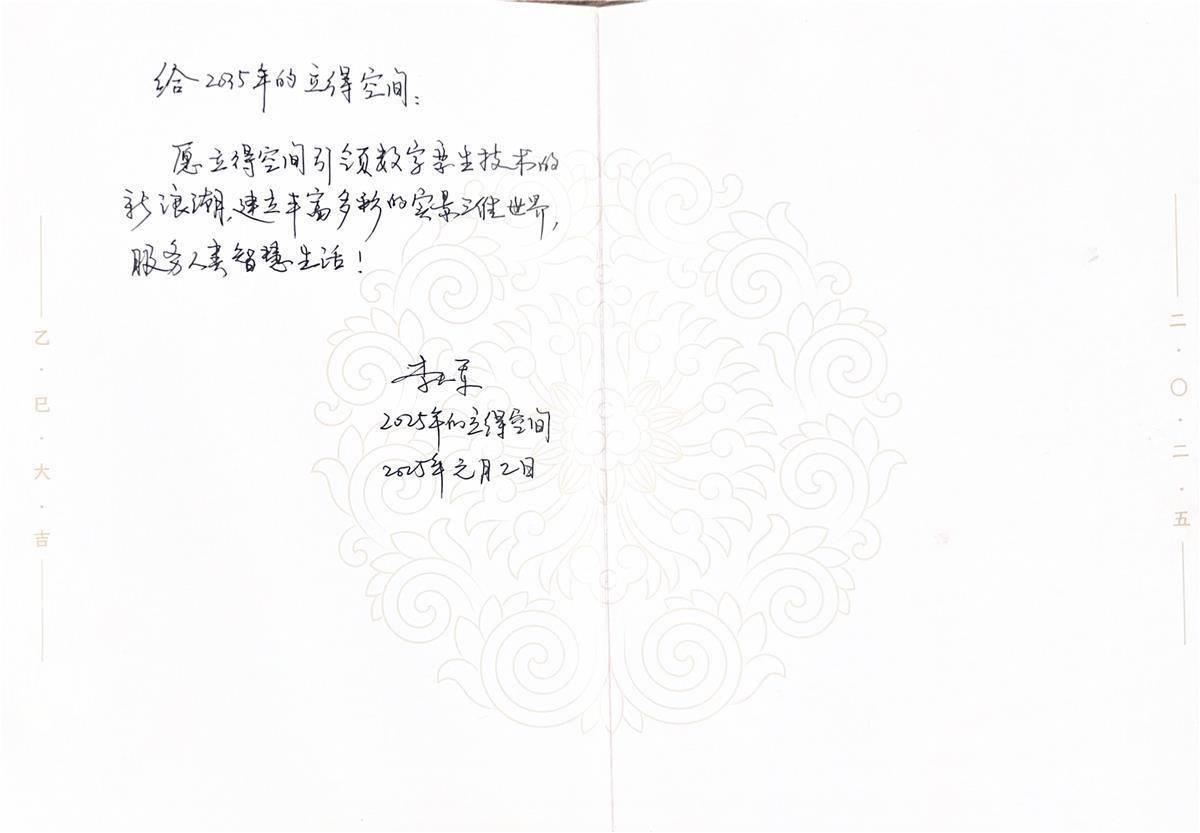 给2035年的立得空间：
愿立得空间引领数字孪生技术的
新浪潮，建立丰富多彩的实景三维世界，
服务人类智慧生活！
2025年的立得空间
2025年元月2日
乙·巳·大·吉
二·〇·二·五